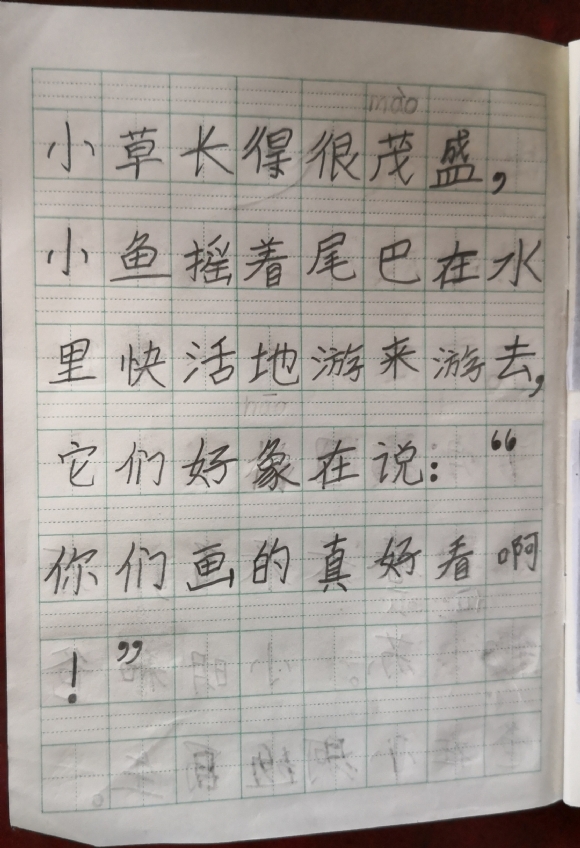 mào
小草长得很茂盛，
小鱼摇着尾巴在水
里快活地游来游去，
hǎo
它们好象在说：“
你们画的真好看啊
！”